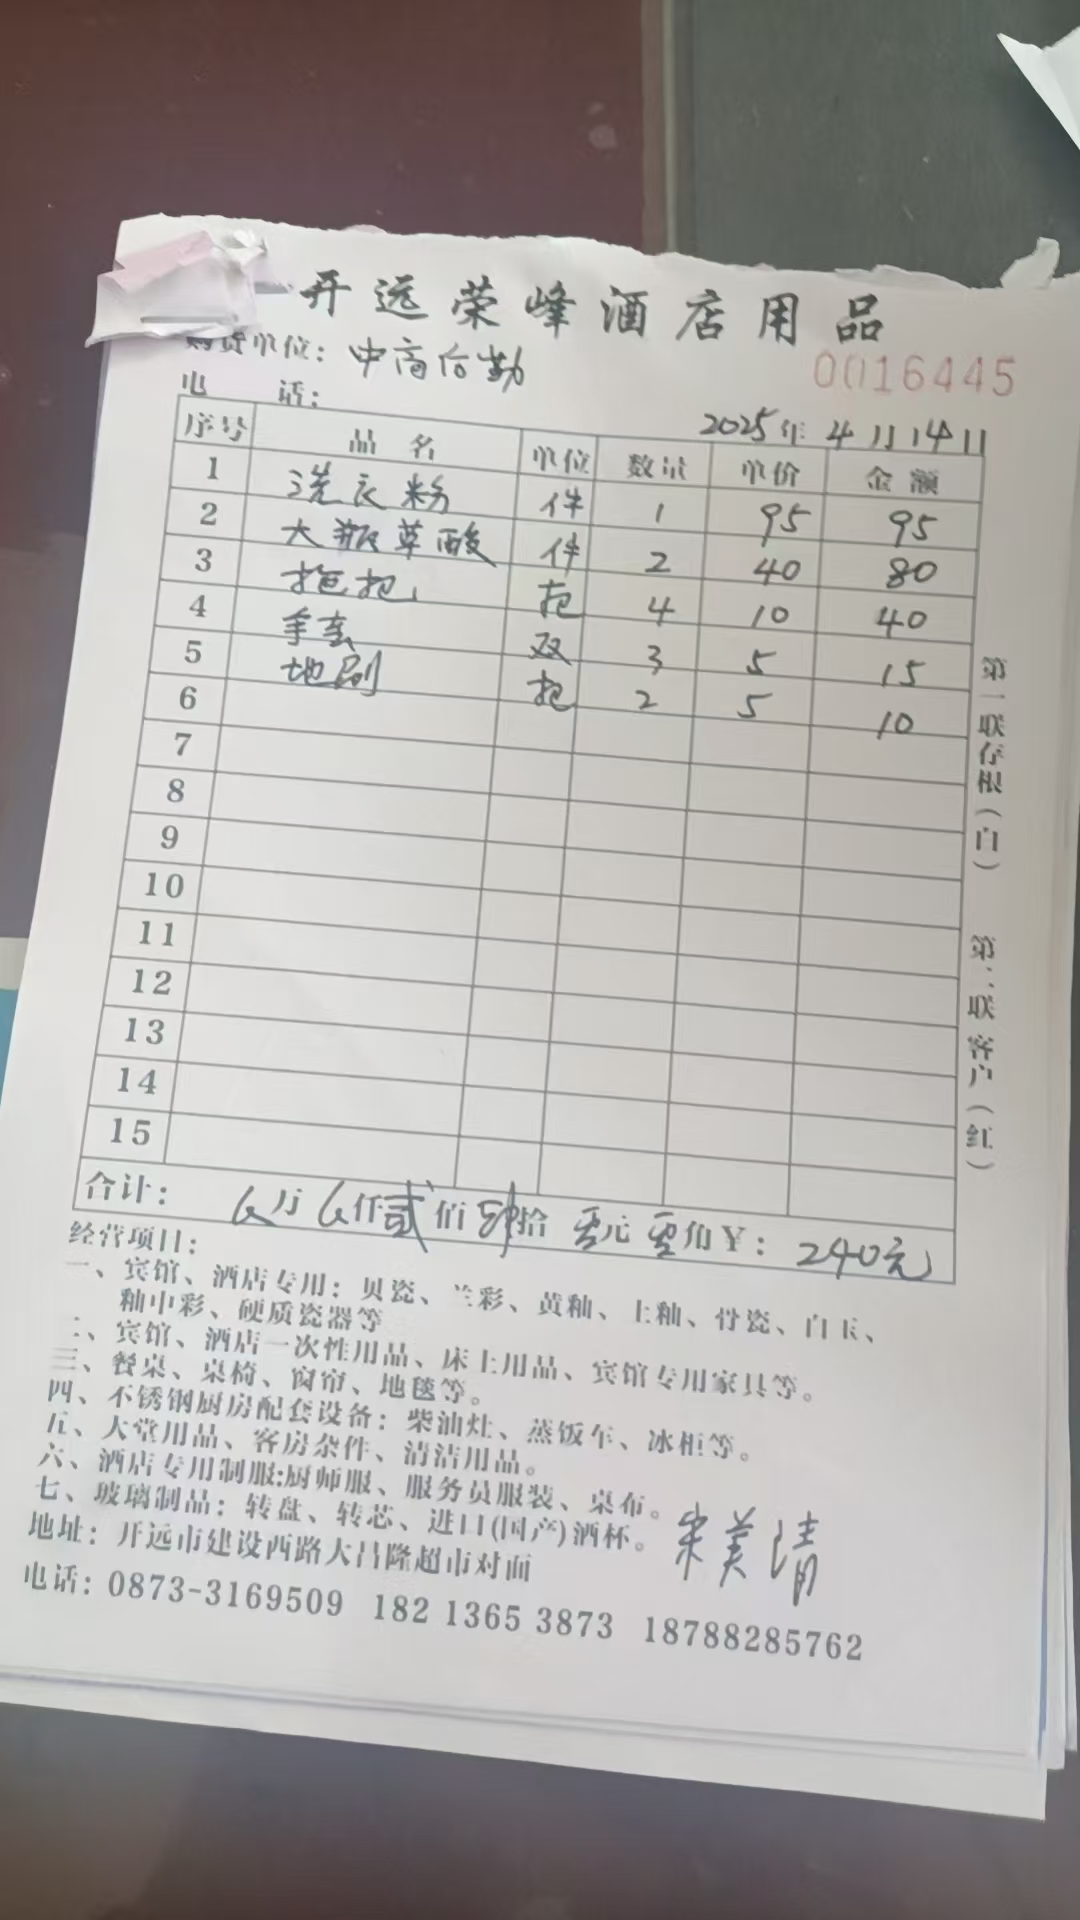 开远荣峰酒店用品
购货单位：中商后勤
0016445
电 话：
2025年4月14日
序号 品名 单位 数量 单价 金额
1 洗衣粉 件 1 95 95
2 大瓶草酸 件 2 40 80
3 拖把 把 4 10 40
4 手套 双 3 5 15
5 地刷 把 2 5 10
6
7
8
9
10
11
12
13
14
15
合计： 万 仟贰佰肆拾零元零角￥：240元
第一联存根（白） 第二联客户（红）
经营项目：
一、宾馆、酒店专用：贝瓷、兰彩、黄釉、土釉、骨瓷、白玉、
釉中彩、硬质瓷器等
二、宾馆、酒店一次性用品、床上用品、宾馆专用家具等。
三、餐桌、桌椅、窗帘、地毯等。
四、不锈钢厨房配套设备：柴油灶、蒸饭车、冰柜等。
五、大堂用品、客房杂件、清洁用品。
六、酒店专用制服:厨师服、服务员服装、桌布。
七、玻璃制品：转盘、转芯、进口(国产)酒杯。
宋美清
地址：开远市建设西路大昌隆超市对面
电话：0873-3169509 182 1365 3873 18788285762